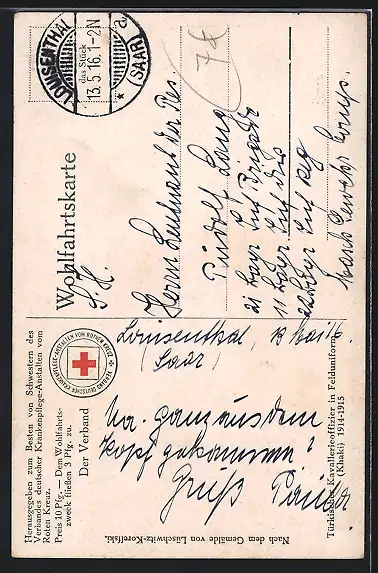 LOUISENTHAL
13.5.16.1-2N
(SAAR)
a
das Stück
78
Wohlfahrtskarte
S. H.
Herrn Leutnant der Res.
Rudolf Lang
21 bayr Inf Brigade
11 bayr. Inf Div
bayr Inf Rg
Masch Gewehr Komp.
VERBAND DEUTSCHER KRANKENPFLEGE-ANSTALTEN VOM ROTEN KREUZ
Herausgegeben zum Besten von Schwestern des
Verbandes deutscher Krankenpflege-Anstalten vom
Roten Kreuz.
Preis 10 Pfg. — Dem Wohlfahrts-
zweck fließen 3 Pfg. zu.
Der Verband
Louisenthal, 13 Mai 16
(Saar)
Na. ganz aus dem
Kopf gekommen?
Gruß
Nach dem Gemälde von Lüschwitz-Koreffski.
Türkischer Kavallerieoffizier in Felduniform
(Khaki) 1914-1915